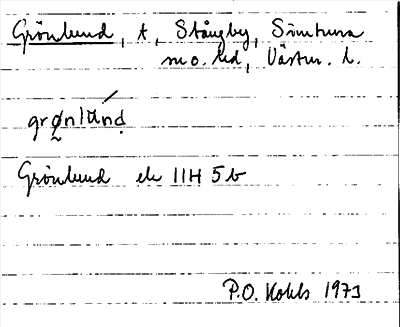 Grönlund, t, Stångby, Simtuna
sn o. hd, Västm. l.
grønlund
Grönlund ek 11H 5b
P.O. Kohls 1973